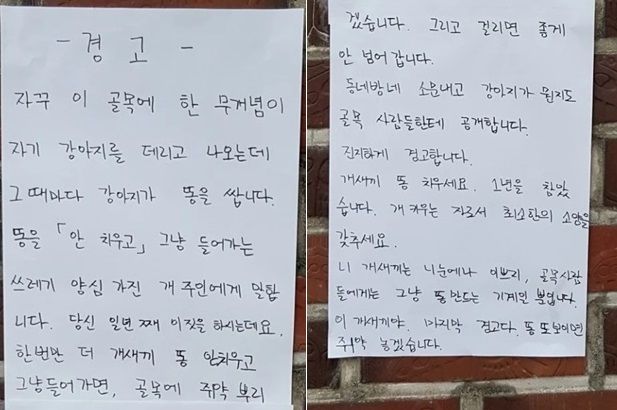 - 경고 -
자꾸 이 골목에 한 무개념이
자기 강아지를 데리고 나오는데
그때마다 강아지가 똥을 쌉니다.
똥을 「안 치우고」 그냥 들어가는
쓰레기 양심 가진 개 주인에게 말합
니다. 당신 일년 째 이짓을 하시는데요.
한번만 더 개새끼 똥 안치우고
그냥들어가면, 골목에 쥐약 뿌리
겠습니다. 그리고 걸리면 좋게
안 넘어 갑니다.
동네방네 소문내고 강아지가 뭔지도
골목 사람들한테 공개합니다.
진지하게 경고합니다.
개새끼 똥 치우세요. 1년을 참았
습니다. 개 키우는 자로서 최소한의 소양을
갖추세요.
니 개새끼는 니눈에나 이쁘리, 골목사람
들에게는 그냥 똥만드는 기계일 뿐입니다.
이 개새끼야. 마지막 경고다. 똥 또보이면
쥐약 놓겠습니다.